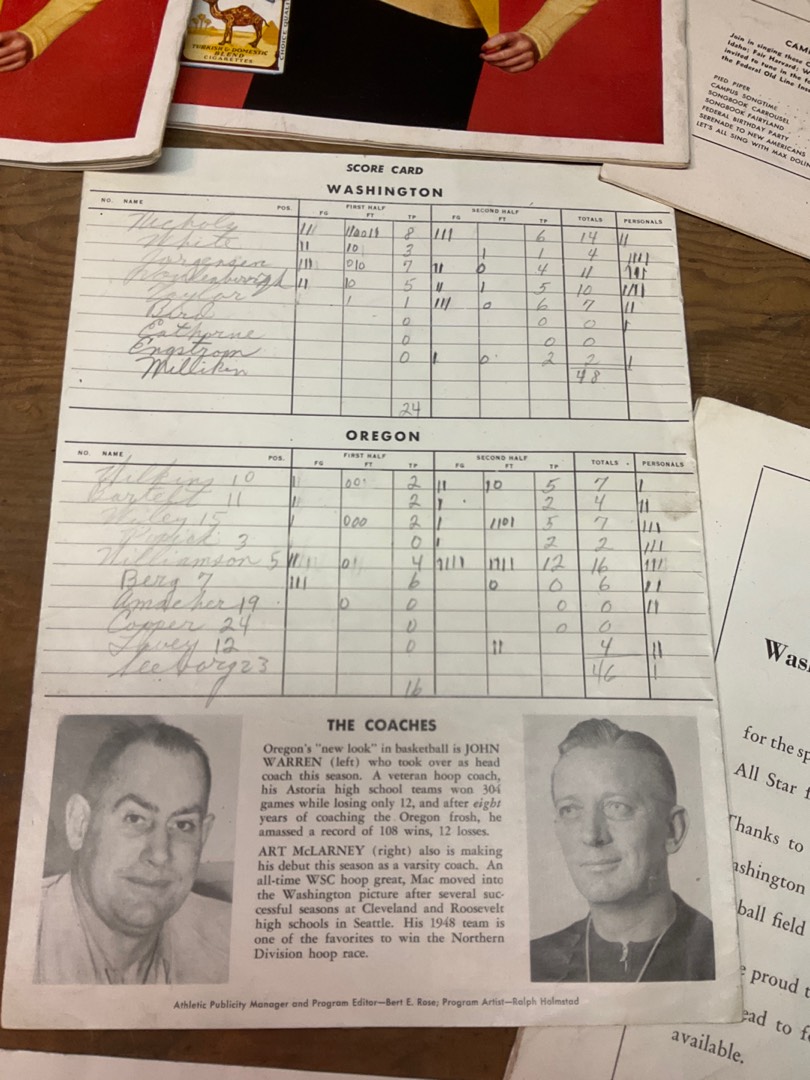 TURKISH & DOMESTIC
BLEND
CIGARETTES
CHOICE
Join in singing these
Idaho; Fair Harvard;
invited to tune in the
the Federal Old Line
PIED PIPER
CAMPUS SONGTIME
SONGBOOK CARROUSEL
SONGBOOK FAIRYLAND
FEDERAL BIRTHDAY PARTY
SERENADE TO NEW AMERICANS
LET'S ALL SING WITH MAX
SCORE CARD
WASHINGTON
NO. NAME POS. FIRST HALF SECOND HALF TOTALS PERSONALS
FG FT TP FG FT TP
Nichols 8 6 14
White 10 3 1 4
Jorgenson 010 7 0 4 11
10 5 5 10
Taylor 1 0 6 7
Bird 0 0 0
Cathorne 0 0 0
Engstrom 0 0 2 2
Milliken 48
24
OREGON
NO. NAME POS. FIRST HALF SECOND HALF TOTALS PERSONALS
FG FT TP FG FT TP
Wilkins 10 00 2 10 5 7
Bartelt 11 2 2 4
Wiley 15 000 2 1101 5 7
3 0 2 2
Williamson 5 0 4 12 16
Berg 7 6 0 0 6
Amacher 19 0 0 0 0
Cooper 24 0 0 0
12 0 4
Seeborg 23 46
16
THE COACHES
Oregon's "new look" in basketball is JOHN
WARREN (left) who took over as head
coach this season. A veteran hoop coach,
his Astoria high school teams won 304
games while losing only 12, and after eight
years of coaching the Oregon frosh, he
amassed a record of 108 wins, 12 losses.
ART McLARNEY (right) also is making
his debut this season as a varsity coach. An
all-time WSC hoop great, Mac moved into
the Washington picture after several suc-
cessful seasons at Cleveland and Roosevelt
high schools in Seattle. His 1948 team is
one of the favorites to win the Northern
Division hoop race.
Athletic Publicity Manager and Program Editor—Bert E. Rose; Program Artist—Ralph Holmstad
Wash
for the sp
All Star f
Thanks to
ashington
ball field
e proud t
ead to f
available.